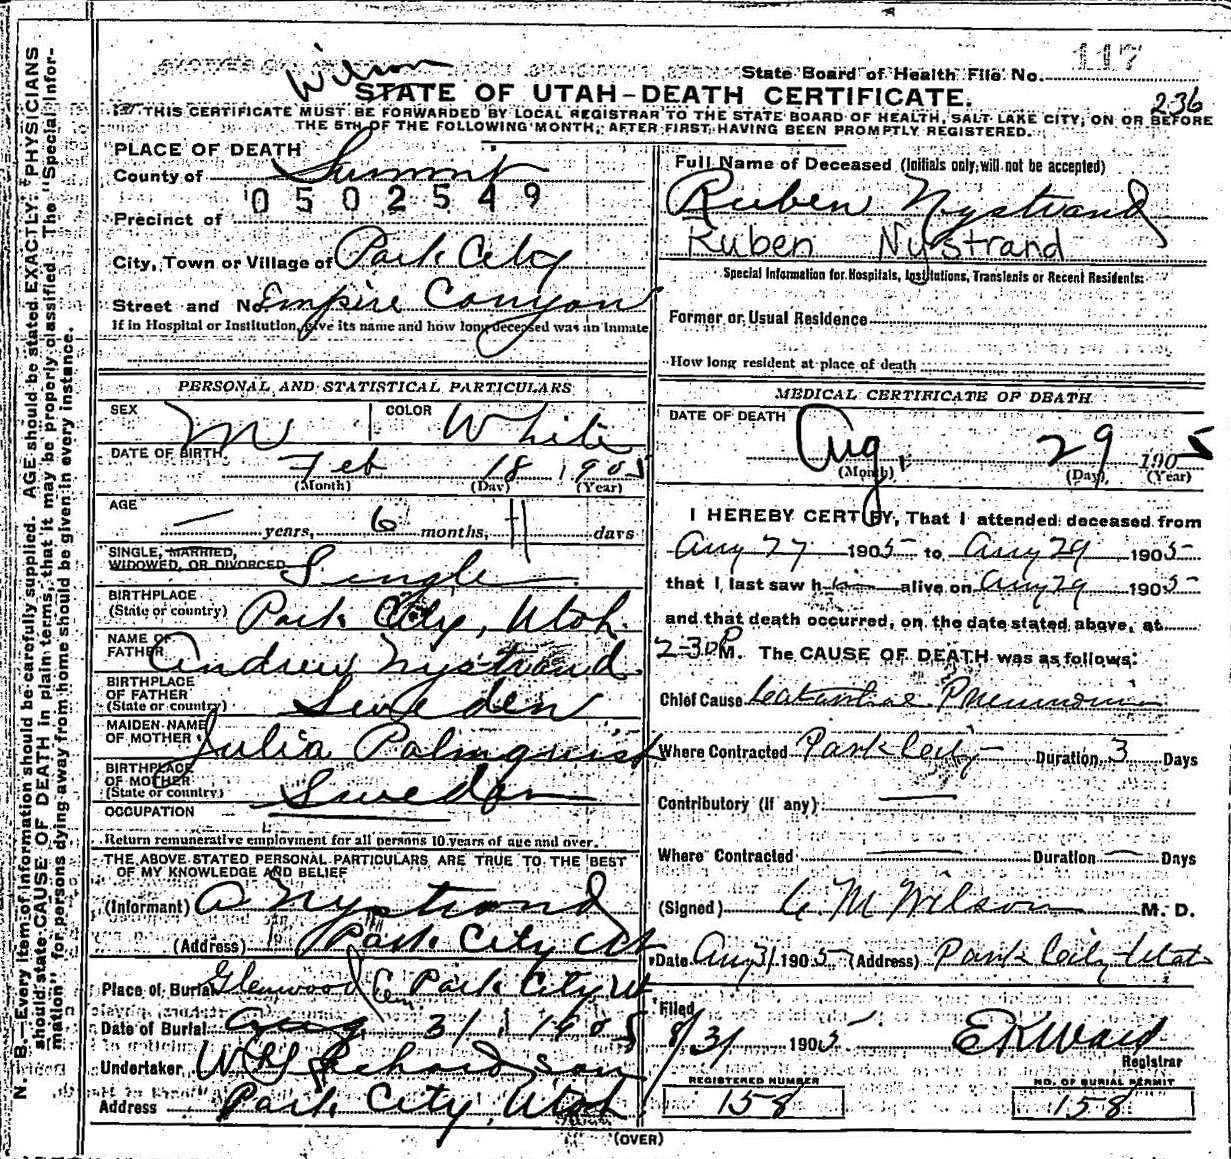 Wilson
117
State Board of Health File No.
STATE OF UTAH-DEATH CERTIFICATE.
236
THIS CERTIFICATE MUST BE FORWARDED BY LOCAL REGISTRAR TO THE STATE BOARD OF HEALTH, SALT LAKE CITY, ON OR BEFORE
THE 5TH OF THE FOLLOWING MONTH, AFTER FIRST HAVING BEEN PROMPTLY REGISTERED.
PLACE OF DEATH
County of Summit
0502549
Precinct of
City, Town or Village of Park City
Street and No. Empire Canyon
If in Hospital or Institution, give its name and how long deceased was an inmate
PERSONAL AND STATISTICAL PARTICULARS
SEX M COLOR White
DATE OF BIRTH. Feb 18 1905
(Month) (Day) (Year)
AGE — years, 6 months, 11 days
SINGLE, MARRIED,
WIDOWED, OR DIVORCED Single
BIRTHPLACE
(State or country) Park City, Utah.
NAME OF
FATHER Andrew Nystrand
BIRTHPLACE
OF FATHER
(State or country) Sweden
MAIDEN NAME
OF MOTHER Julia Palmquist
BIRTHPLACE
OF MOTHER
(State or country) Sweden
OCCUPATION
Return remunerative employment for all persons 10 years of age and over.
THE ABOVE STATED PERSONAL PARTICULARS ARE TRUE TO THE BEST
OF MY KNOWLEDGE AND BELIEF
(Informant) A Nystrand
(Address) Park City Ut
Place of Burial Glenwood Cem Park City Ut
Date of Burial Aug. 31 1905
Undertaker W H Richardson
Address Park City, Utah
Full Name of Deceased (Initials only will not be accepted)
Ruben Nystrand
Ruben Nystrand
Special Information for Hospitals, Institutions, Transients or Recent Residents:
Former or Usual Residence
How long resident at place of death
MEDICAL CERTIFICATE OF DEATH
DATE OF DEATH Aug, 29 1905
(Month) (Day) (Year)
I HEREBY CERTIFY, That I attended deceased from
Aug 27 1905 to Aug 29 1905
that I last saw him alive on Aug 29 1905
and that death occurred, on the date stated above, at
2-30 P M. The CAUSE OF DEATH was as follows:
Chief Cause Catarrhal Pneumonia
Where Contracted Park City Duration 3 Days
Contributory (if any) —
Where Contracted — Duration — Days
(Signed) C M Wilson M. D.
Date Aug 31 1905 (Address) Park City Utah
Filed
8/31 1905 E K Ward
Registrar
REGISTERED NUMBER
158
NO. OF BURIAL PERMIT
158
(OVER)
N. B.—Every item of information should be carefully supplied. AGE should be stated EXACTLY. PHYSICIANS
should state CAUSE OF DEATH in plain terms, that it may be properly classified. The "Special Infor-
mation" for persons dying away from home should be given in every instance.